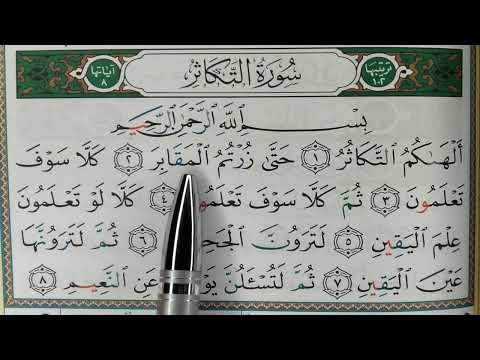 ترتيبها ١٠٢
سُورَةُ التَّكَاثُرِ
آياتها ٨
بِسْمِ ٱللَّهِ ٱلرَّحْمَٰنِ ٱلرَّحِيمِ
أَلْهَىٰكُمُ ٱلتَّكَاثُرُ ١ حَتَّىٰ زُرْتُمُ ٱلْمَقَابِرَ ٢ كَلَّا سَوْفَ
تَعْلَمُونَ ٣ ثُمَّ كَلَّا سَوْفَ تَعْلَمُونَ ٤ كَلَّا لَوْ تَعْلَمُونَ
عِلْمَ ٱلْيَقِينِ ٥ لَتَرَوُنَّ ٱلْجَحِ ٦ ثُمَّ لَتَرَوُنَّهَا
عَيْنَ ٱلْيَقِينِ ٧ ثُمَّ لَتُسْـَٔلُنَّ عَنِ ٱلنَّعِيمِ ٨